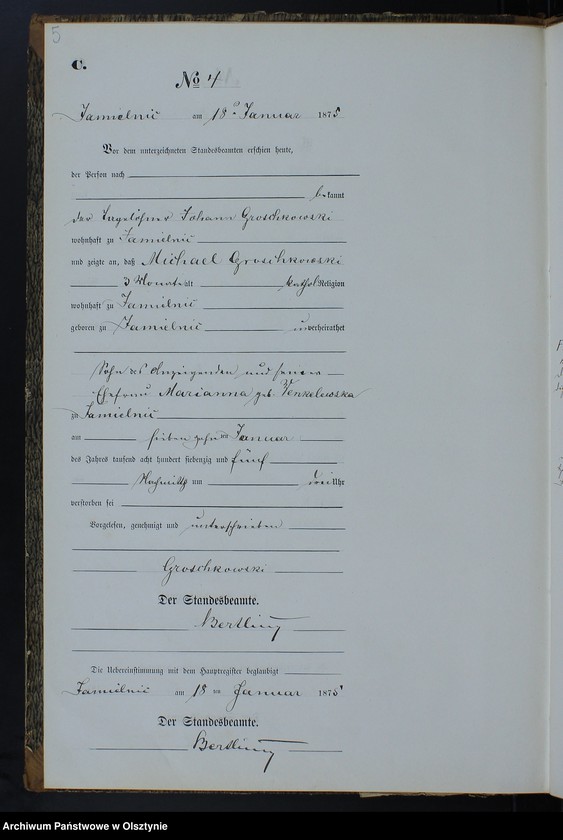 5
C.
No 4
Jamielnic am 18 Januar 1875
Vor dem unterzeichneten Standesbeamten erschien heute,
der Person nach
bekannt
der Tagelöhner Johann Groschkowski
wohnhaft zu Jamielnic
und zeigte an, daß Michael Groschkowski
3 Monate alt kathol. Religion
wohnhaft zu Jamielnic
geboren zu Jamielnic unverheirathet
Sohn des Anzeigenden und seiner
Ehefrau Marianna geb. Venkelewska
zu Jamielnic
am siebenzehnten Januar
des Jahres tausend acht hundert siebenzig und fünf
Nachmittg um drei Uhr
verstorben sei
Vorgelesen, genehmigt und unterschrieben
Groschkowski
Der Standesbeamte.
Bertling
Die Uebereinstimmung mit dem Hauptregister beglaubigt
Jamielnic am 18ten Januar 1875
Der Standesbeamte.
Bertling
Archiwum Państwowe w Olsztynie